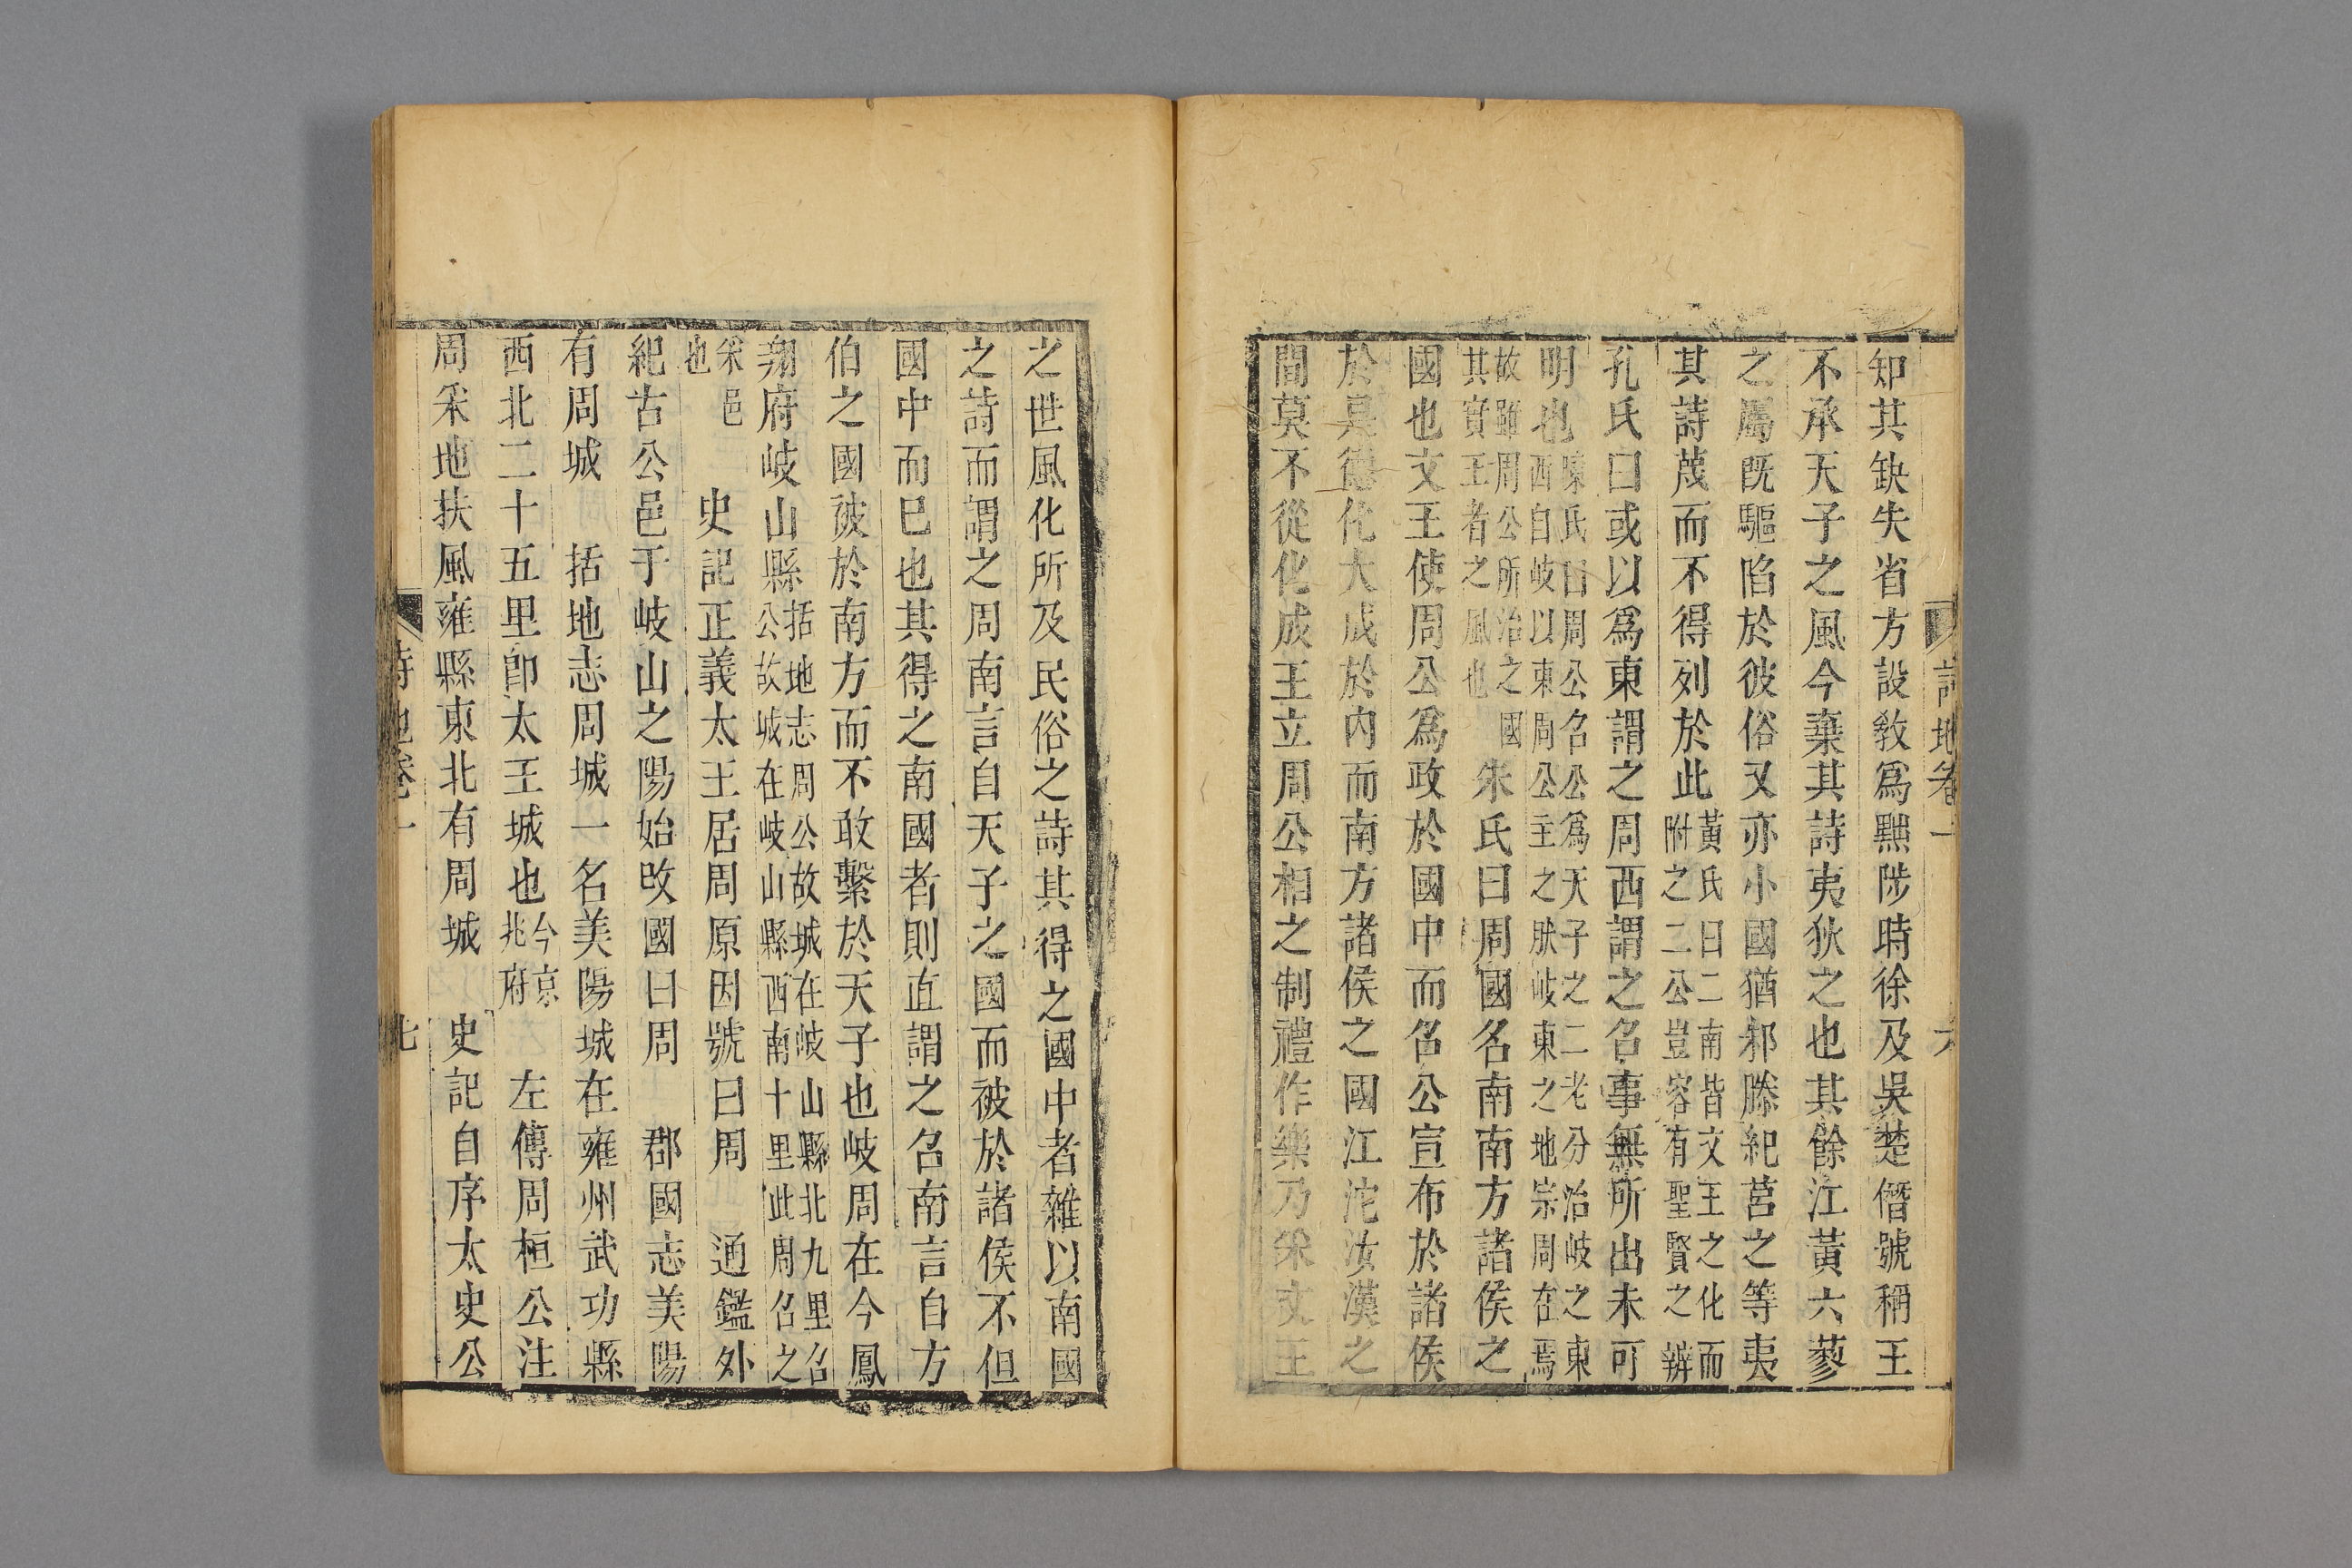 知其缺失省方設敎爲黜陟時徐及吳楚僭號稱王
不承天子之風今棄其詩夷狄之也其餘江黃六蓼
之屬旣驅陷於彼俗又亦小國猶邾滕紀莒之等夷
其詩蔑而不得列於此黃氏曰二南皆文王之化而
附之二公豈容有聖賢之辨
孔氏曰或以爲東謂之周西謂之召事無所出未可
明也陳氏曰周公召公爲天子之二老分治岐之東
西自岐以東周公主之肰岐東之地宗周在焉
故雖周公所治之國
其實王者之風也
朱氏曰周國名南南方諸侯之
國也文王使周公爲政於國中而召公宣布於諸侯
於是德化大成於内而南方諸侯之國江沱汝漢之
間莫不從化成王立周公相之制禮作樂乃采文王
詩地卷一
六
之世風化所及民俗之詩其得之國中者雜以南國
之詩而謂之周南言自天子之國而被於諸侯不但
國中而巳也其得之南國者則直謂之召南言自方
伯之國被於南方而不敢繫於天子也岐周在今鳳
翔府岐山縣括地志周公故城在岐山縣北九里召
公故城在岐山縣西南十里此周召之
采邑
也
史記正義太王居周原因號曰周　通鑑外
紀古公邑于岐山之陽始改國曰周　郡國志美陽
有周城　括地志周城一名美陽城在雍州武功縣
西北二十五里卽太王城也今京
兆府
左傳周桓公注
周采地扶風雍縣東北有周城　史記自序太史公
詩地卷一
七